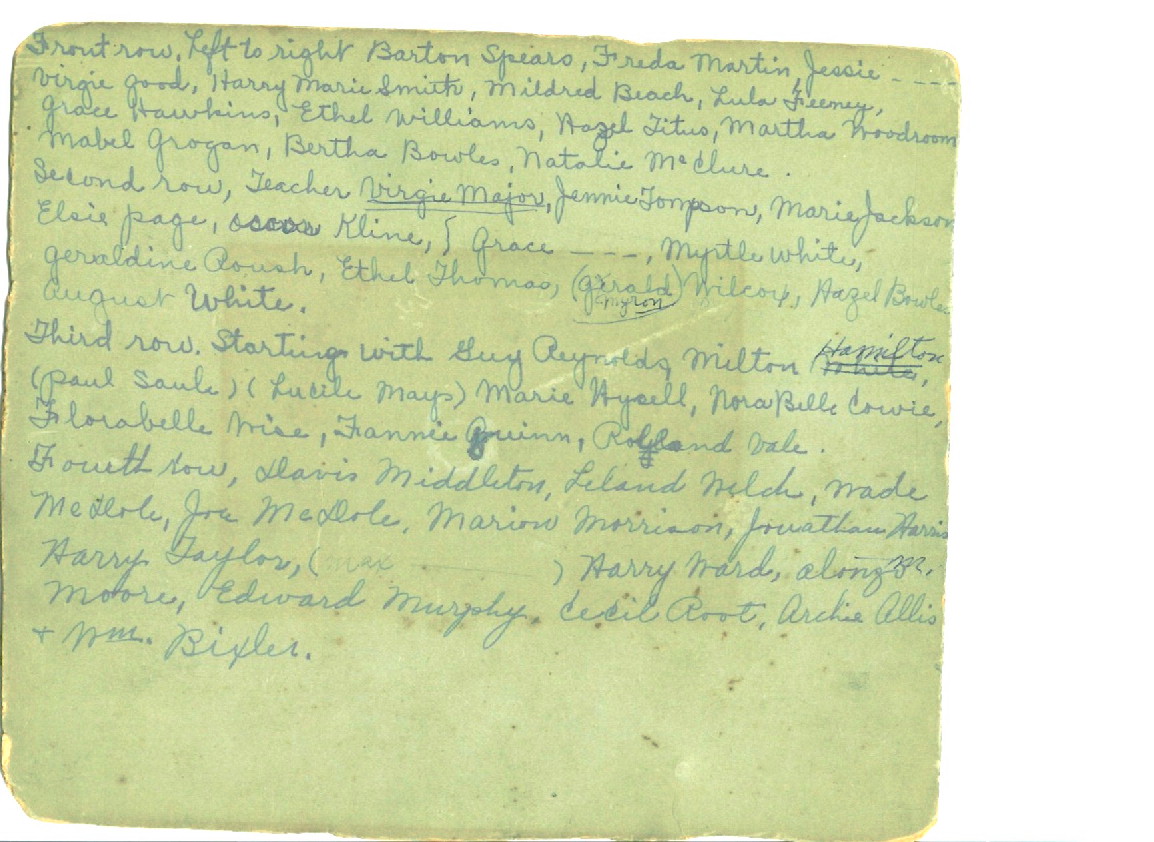 Front row, Left to right Barton Spears, Freda Martin, Jessie ----
Virgie good, Harry Marie Smith, Mildred Beach, Lula Feeney,
Grace Hawkins, Ethel Williams, Hazel Titus, Martha Woodroom
Mabel Grogan, Bertha Bowles, Natalie McClure.
Second row, Teacher Virgie Major, Jennie Tompson, Marie Jackson
Elsie page, Kline, { Grace ----, Myrtle White,
geraldine Roush, Ethel Thomas, (gerald) Wilcox, Hazel Bowles
myron
august White.
Third row. Starting with Guy Reynolds, Milton Hamilton,
(Paul Saule) (Lucile Mays) Marie Hysell, Nora Belle Cowie,
Florabelle Wise, Fannie Quinn, Rolland Vale.
Fourth row, Davis Middleton, Leland Welch, Wade
McDole, Joe McDole, Marion Morrison, Jonathan Harris
Harry Taylor, (max ----) Harry Ward, alonzo m.
Moore, Edward Murphy, Cecil Root, Archie Allis
+ Wm. Bixler.